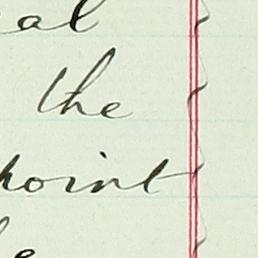 al
the
point